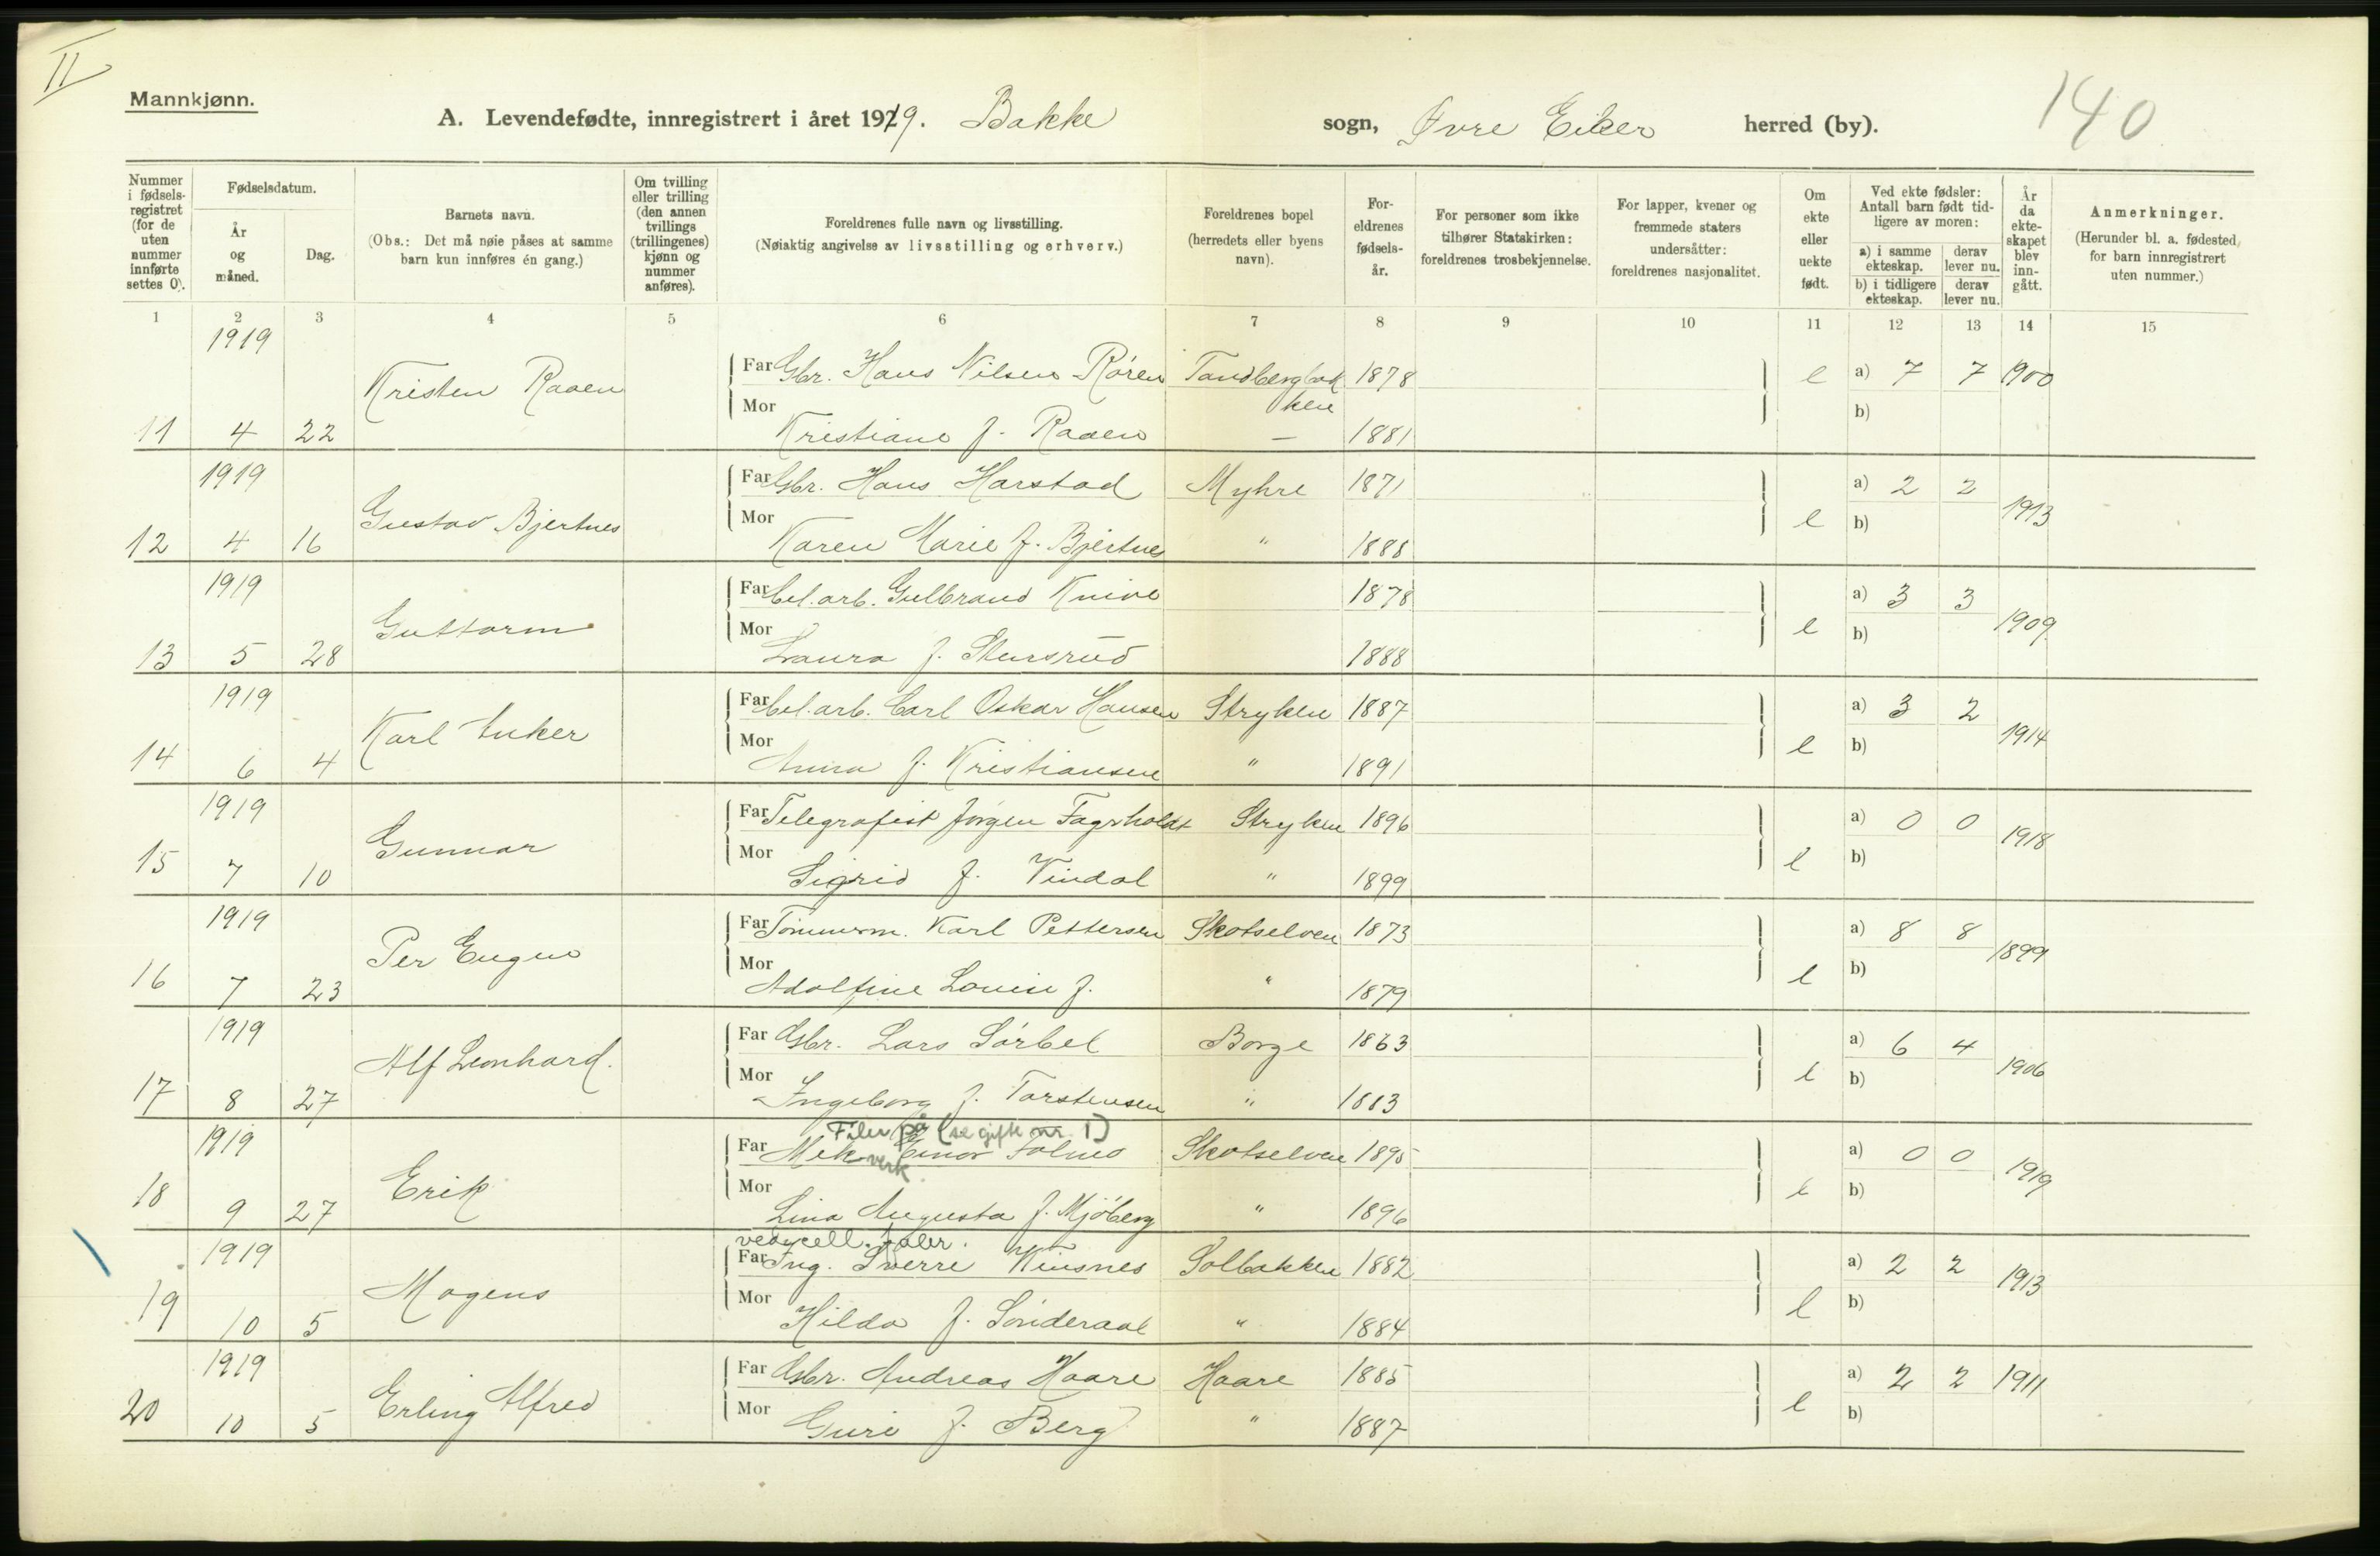 II
Mannkjønn.
A. Levendefødte, innregistrert i året 1919. Bakke sogn, Øvre Eiker herred (by).
140
Nummer i fødselsregistret (for de uten nummer innførte settes 0).
Fødselsdatum.
År og måned.
Dag.
Barnets navn.
(Obs.: Det må nøie påses at samme barn kun innføres én gang.)
Om tvilling eller trilling (den annen tvillings (trillingenes) kjønn og nummer anføres).
Foreldrenes fulle navn og livsstilling.
(Nøiaktig angivelse av livsstilling og erhverv.)
Foreldrenes bopel (herredets eller byens navn).
For-eldrenes fødsels-år.
For personer som ikke tilhører Statskirken: foreldrenes trosbekjennelse.
For lapper, kvener og fremmede staters undersåtter: foreldrenes nasjonalitet.
Om ekte eller uekte født.
Ved ekte fødsler: Antall barn født tidligere av moren:
a) i samme ekteskap. derav lever nu.
b) i tidligere ekteskap. derav lever nu.
År da ekte-skapet blev inn-gått.
Anmerkninger.
(Herunder bl. a. fødested for barn innregistrert uten nummer.)
1 2 3 4 5 6 7 8 9 10 11 12 13 14 15
1919
Kristen Raaen
Far Gbr. Hans Nilsen Røren Tandbergbakken 1878 e a) 7 7 1900
11 4 22 Mor Kristiane f. Raaen — 1881 b)
1919
Gustav Bjertnes
Far Gbr. Hans Harstad Myhre 1871 a) 2 2 1913
12 4 16 Mor Karen Marie f. Bjertnes " 1888 e b)
1919
Guttorm
Far Cel.arb. Gulbrand Knive 1878 a) 3 3 1909
13 5 28 Mor Laura f. Stensrud 1888 e b)
1919
Karl Anker
Far Cel.arb. Carl Oskar Hansen Stryken 1887 a) 3 2 1914
14 6 4 Mor Anna f. Kristiansen " 1891 e b)
1919
Gunnar
Far Telegrafist Jørgen Fagrholdt Stryken 1896 a) 0 0 1918
15 7 10 Mor Sigrid f. Vindal " 1899 e b)
1919
Per Eugen
Far Tømmerm. Karl Pettersen Skotselven 1873 a) 8 8 1899
16 7 23 Mor Adolfine Louise f. " 1879 e b)
1919
Alf Leonhard.
Far Gbr. Lars Sørbel Borge 1863 a) 6 4 1906
17 8 27 Mor Ingeborg f. Torstensen " 1883 e b)
1919
Filer på (se gifte nr. 1)
Erik
Far Mek verk Einar Skotselven 1895 a) 0 0 1919
18 9 27 Mor Lina Augusta f. Mjöberg " 1896 e b)
1919
ved cell. faber.
Mogens
Far Ing. Sverre Vinsnes Solbakken 1882 a) 2 2 1913
19 10 5 Mor Hilda f. Sønderaal " 1884 e b)
1919
Erling Alfred
Far Gbr. Andreas Haare Haare 1885 a) 2 2 1911
20 10 5 Mor Guri f. Berg " 1887 e b)